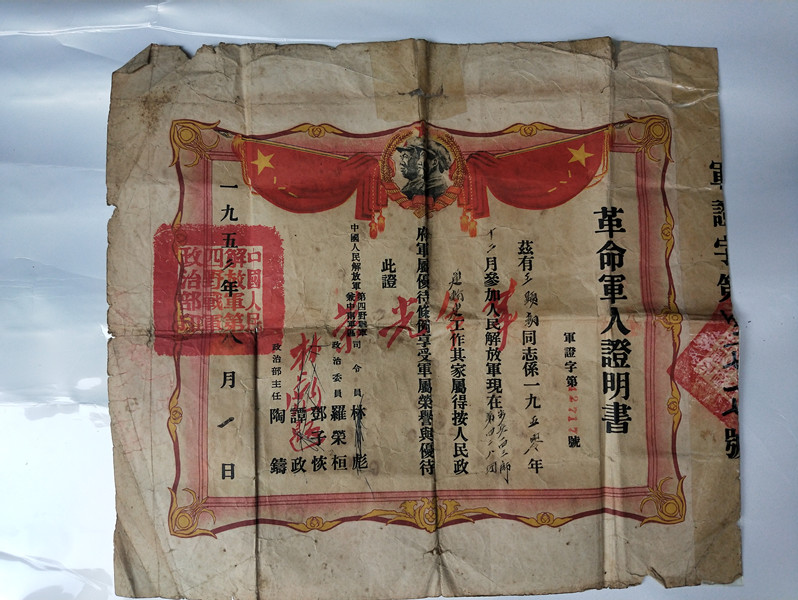 革命軍人證明書
軍證字第12717號
茲有王 同志係一九五零年
十二月參加人民解放軍現在
工作其家屬得按人民政
府軍屬優待條例享受軍屬榮譽與優待
此證
中國人民解放軍第四野戰軍兼中南軍區司令員林彪
政治委員羅榮桓
鄧子恢
政治部主任譚政
陶鑄
一九五 年八月一日
中國人民解放軍第四野戰軍政治部
軍證字第 號